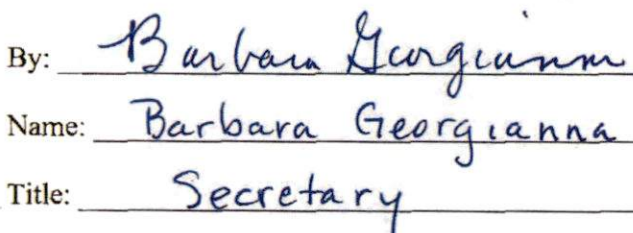 By: Barbara Georgianna
Name: Barbara Georgianna
Title: Secretary